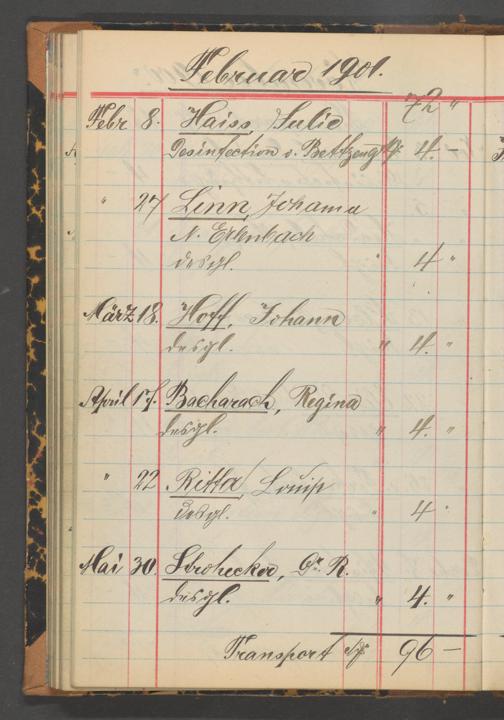 Februar 1901.
72 "
Febr 8. Haiss, Julie
Desinfection v. Bettzeug M 4. –
" 27 Linn, Johanna
N. Erlenbach
desgl. " 4 "
März 18. Hoff, Johann
desgl. " 4. "
April 17. Bacharach, Regina
desgl. " 4. "
" 22 Ritta, Louis
desgl. " 4 "
Mai 30. Strohecker, Dr. R.
desgl. " 4. "
Transport M 96 –